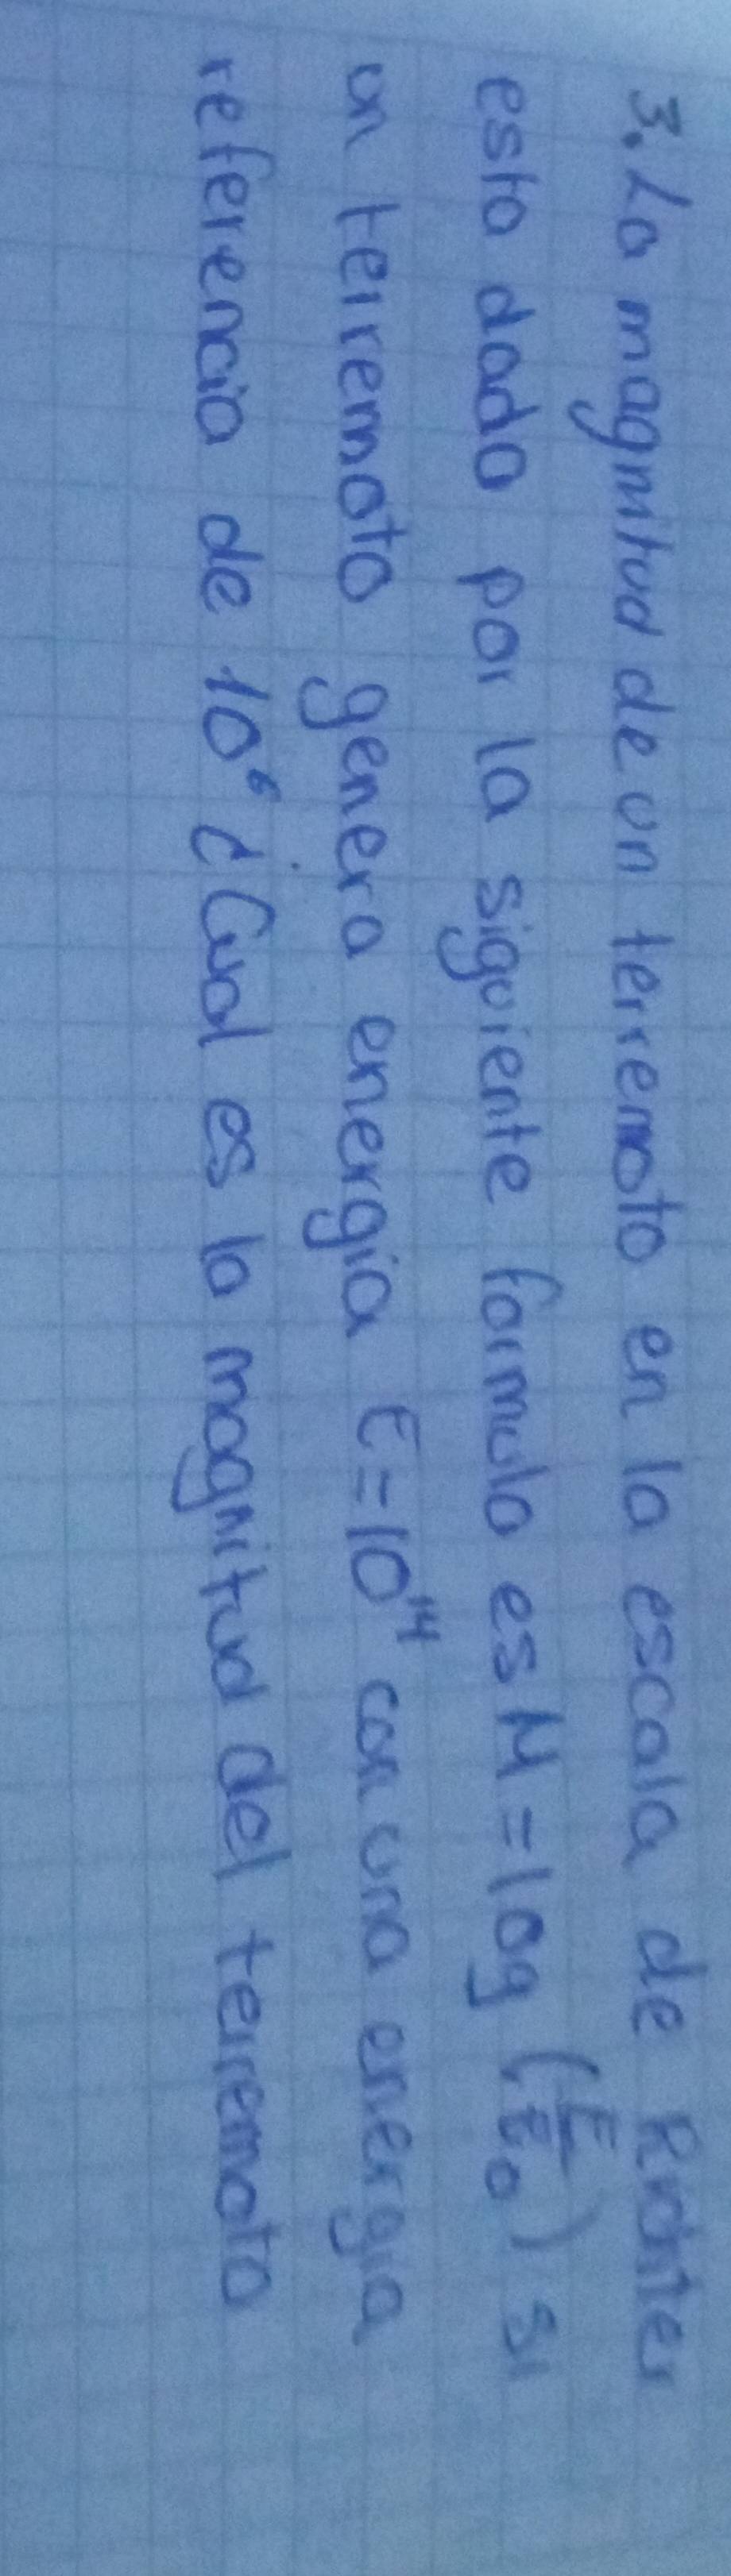 3. La magnitud de un terremoto en la escala de Richter
esta dado por la siguiente formula es M = log (E/E₀) si
un terremoto genera energia E = 10¹⁴ con una energia
referencia de 10⁶ ¿Cual es la magnitud del terremoto